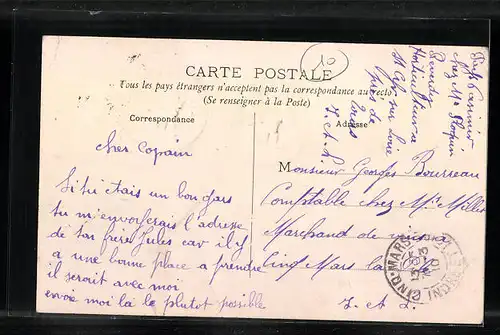 10
CARTE POSTALE
Tous les pays étrangers n'acceptent pas la correspondance au recto
(Se renseigner à la Poste)
Correspondance
Adresse
cher Copain
Si tu étais un bon gars
tu m'enverrais l'adresse
de ton frère Jules car il y
a une bonne place a prendre
il serait avec moi
envoie moi la le plutot possible
Monsieur Georges Bourreau
Comptable chez Mr Millet
Marchand de
Cinq Mars la
I. et L.
chez Mr
horticulteur a
St Cyr sur Loire
près de
Tours
I. et L.
CINQ-MARS